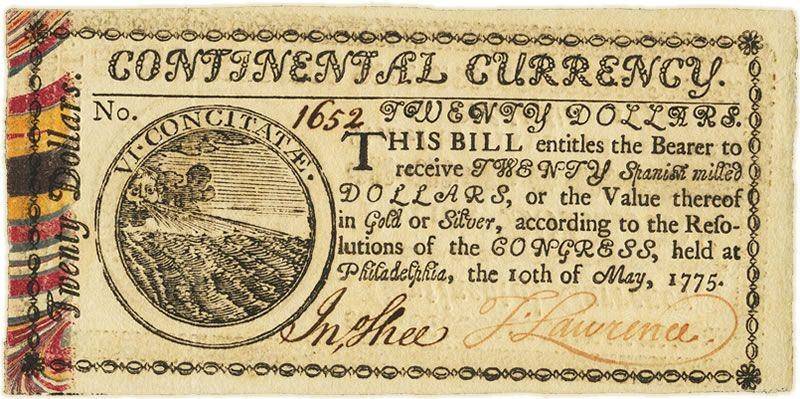 CONTINENTAL CURRENCY.
Twenty Dollars.
No. 1652
VI CONCITATÆ.
TWENTY DOLLARS.
THIS BILL entitles the Bearer to
receive TWENTY Spanish milled
DOLLARS, or the Value thereof
in Gold or Silver, according to the Reso-
lutions of the CONGRESS, held at
Philadelphia, the 10th of May, 1775.
Jno Shee T. Lawrence